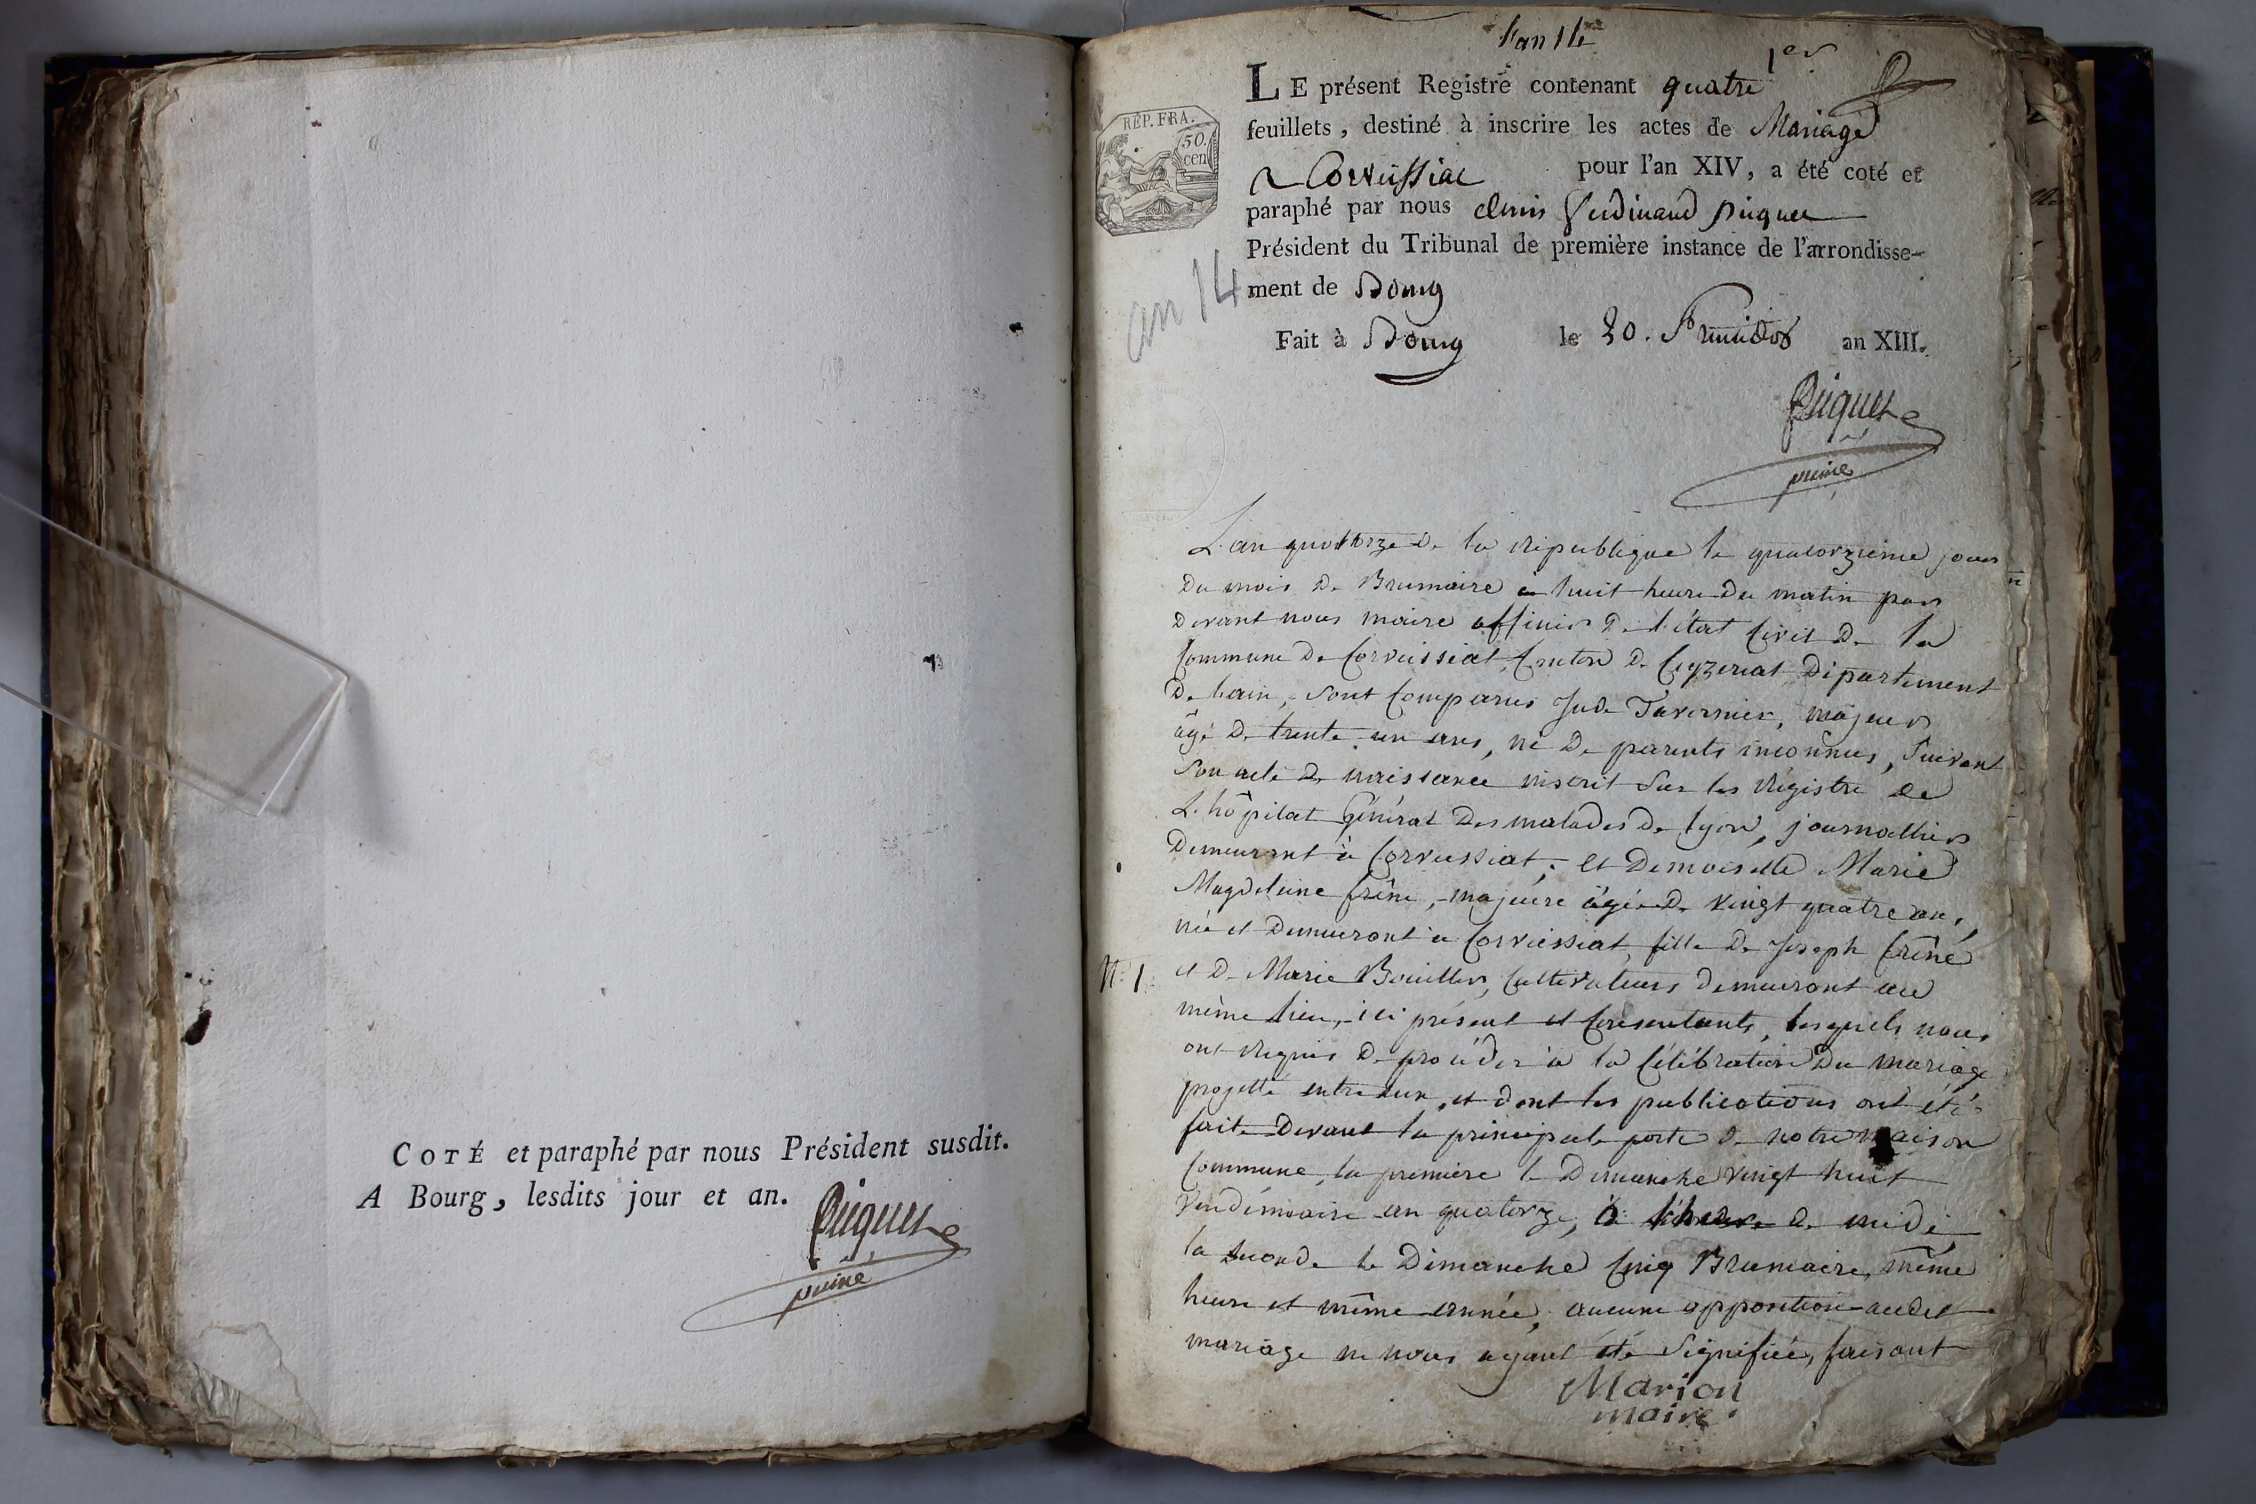 COTÉ et paraphé par nous Président susdit.
A Bourg, lesdits jour et an.
Piquet
puiné
l'an 14
1er
REP. FRA.
50.
cen
LE présent Registre contenant quatre
feuillets, destiné à inscrire les actes de Mariage
a Corveissiac pour l'an XIV, a été coté et
paraphé par nous denis ferdinand piquet
Président du Tribunal de première instance de l'arrondisse-
ment de Bourg
an 14
Fait à Bourg le 20. fructidor an XIII.
Piquet
puiné
L'an quatorze de la république le quatorzieme jour
du mois de Brumaire a huit heure du matin par
devant nous maire officier de l'état Civil de la
Commune de Corveissiat, Canton de Ceyzeriat Département
de lain, sont Comparus Jude Tavernier, majeur
âgé de trente un ans, né de parents inconnus, suivant
son acte de naissance inscrit sur les Régistre de
L'hôpital Général des malades de lyon, journallier
demeurant à Corveissiat; et Demoiselle Marie
Magdeleine frêne, majeure âgée de vingt quatre ans,
née et demeurant a Corveissiat, fille de Joseph frêne
N. 1.
et de Marie Bouiller, Cultivateurs demeurant au
même lieu, ici présent et Consentants, lesquels nous
ont requis de procéder à la Célébration du mariage
projetté entre eux, et dont les publications ont été
faite devant la principale porte de notre maison
Commune, la premiere le Dimanche vingt huit
Vendémiaire an quatorze, à l'heure de midi
la seconde le Dimanche Cinq Brumaire, même
heure et même année, aucune opposition audit
mariage ne nous ayant été signifiée, faisant
Marion
maire